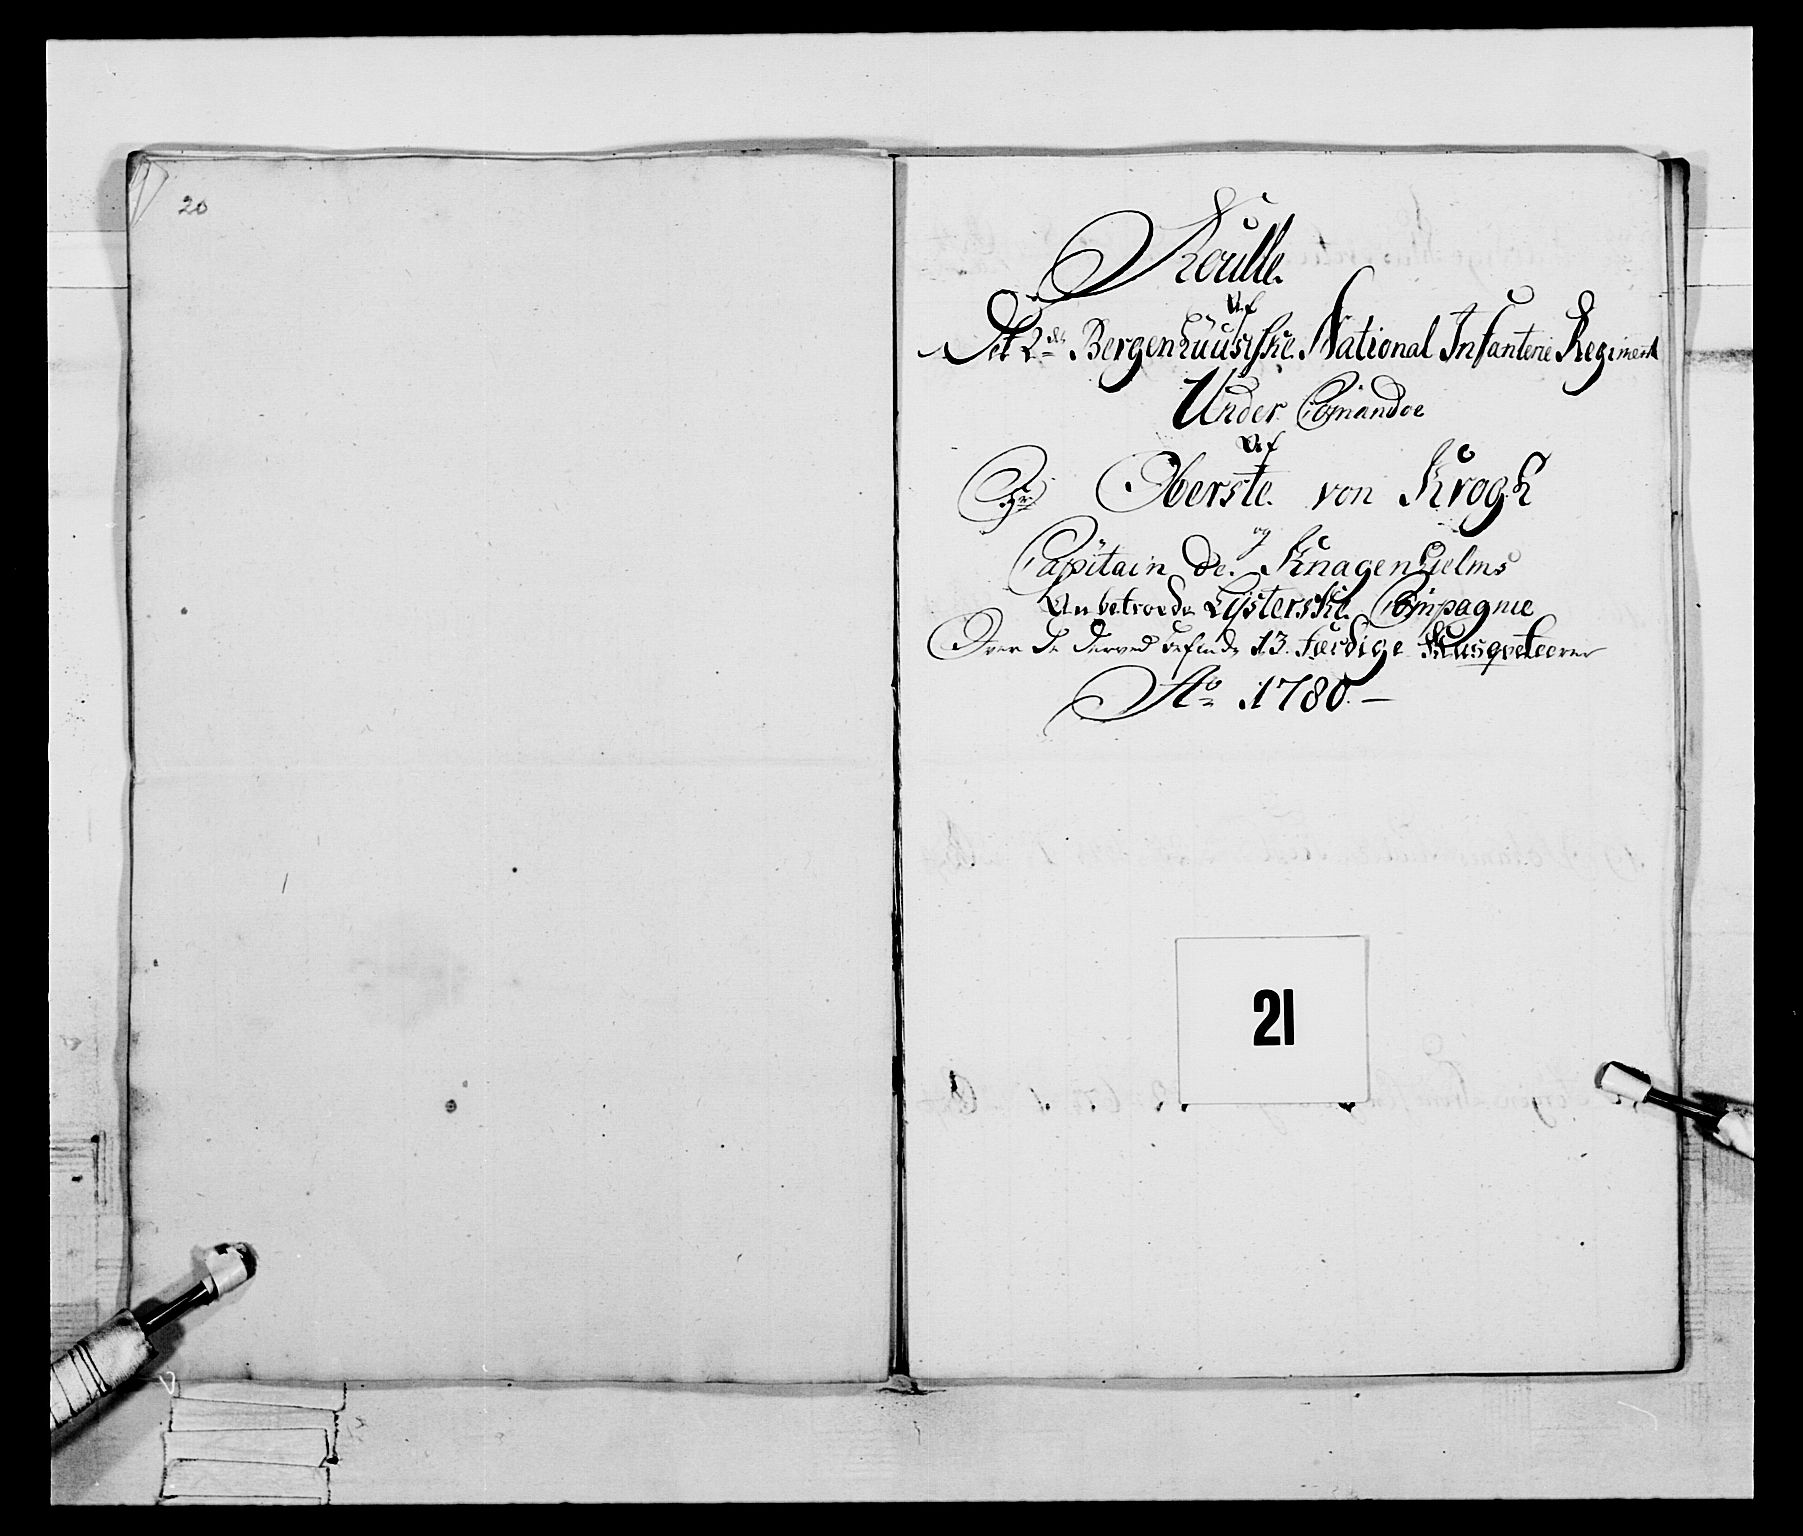 20
Roulle
Af
Det 2de Bergenhuusiske National Infanterie Regiment
Under Comandoe
Af
Hr Oberste von Krogh
og
Capitain de Knagenhjelms
Anbetroede Lysterske Compagnie
Over de derved befinde 13 færdige Musqveteerer
Ao 1780
21